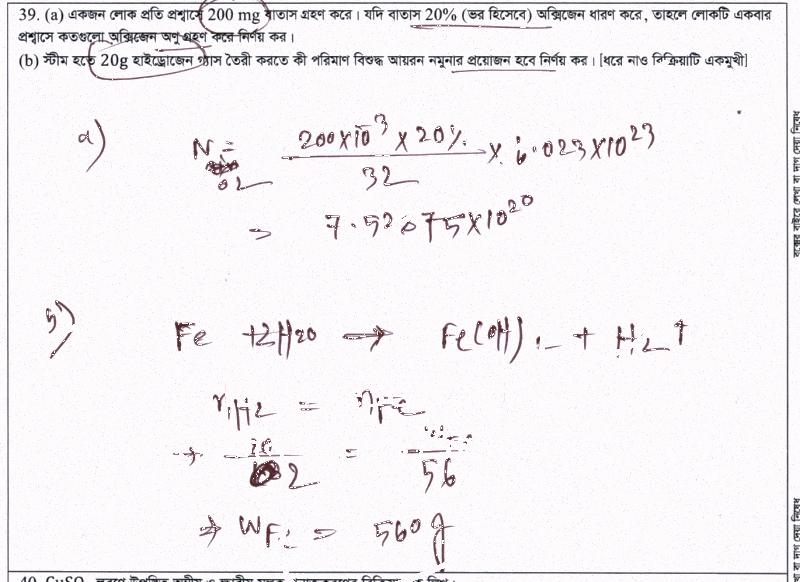 39. (a) একজন লোক প্রতি প্রশ্বাসে 200 mg বাতাস গ্রহণ করে। যদি বাতাস 20% (ভর হিসেবে) অক্সিজেন ধারণ করে, তাহলে লোকটি একবার
প্রশ্বাসে কতগুলো অক্সিজেন অণু গ্রহণ করে নির্ণয় কর।
(b) স্টীম হতে 20g হাইড্রোজেন গ্যাস তৈরী করতে কী পরিমাণ বিশুদ্ধ আয়রন নমুনার প্রয়োজন হবে নির্ণয় কর। [ধরে নাও বিক্রিয়াটি একমুখী]
a)
N O2 = 200×10^-3 × 20% / 32 × 6.023×10^23
= 7.52875×10^20
b)
Fe + 2H2O → Fe(OH)2 + H2 ↑
nH2 = nFe
→ / 2 = / 56
⇒ WFe = 560 g